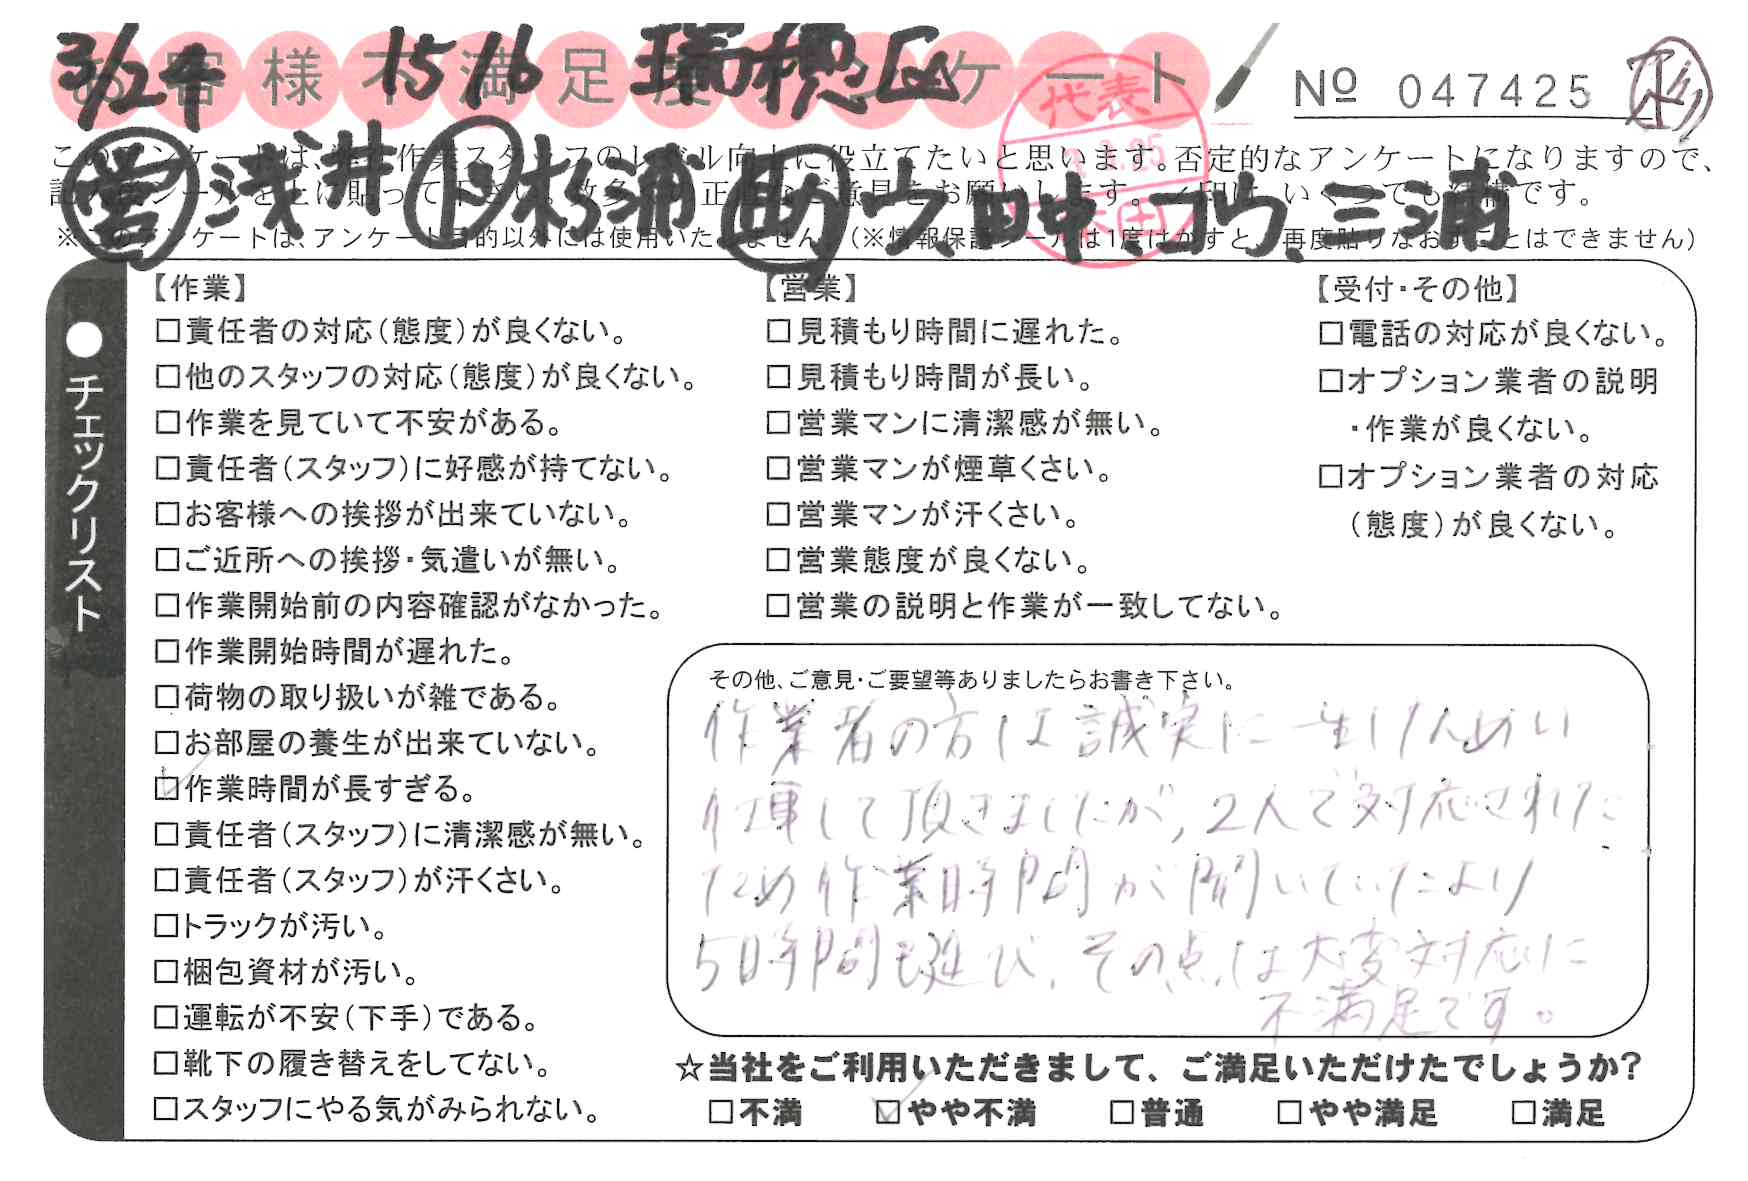 お客様不満足度アンケート
3/24 1516 瑞穂区
No 047425
代表
このアンケートは、弊社作業スタッフのレベル向上に役立てたいと思います。否定的なアンケートになりますので、
記入後シールを上に貼って下さい。数多くの正直なご意見をお願いします。✓印は、いくつでも結構です。
※このアンケートは、アンケート目的以外には使用いたしません。(※情報保護シールは1度はがすと、再度貼りなおすことはできません)
営 浅井 杉浦 田中、三浦
●チェックリスト
【作業】
□責任者の対応(態度)が良くない。
□他のスタッフの対応(態度)が良くない。
□作業を見ていて不安がある。
□責任者(スタッフ)に好感が持てない。
□お客様への挨拶が出来ていない。
□ご近所への挨拶・気遣いが無い。
□作業開始前の内容確認がなかった。
□作業開始時間が遅れた。
□荷物の取り扱いが雑である。
□お部屋の養生が出来ていない。
☑作業時間が長すぎる。
□責任者(スタッフ)に清潔感が無い。
□責任者(スタッフ)が汗くさい。
□トラックが汚い。
□梱包資材が汚い。
□運転が不安(下手)である。
□靴下の履き替えをしてない。
□スタッフにやる気がみられない。
【営業】
□見積もり時間に遅れた。
□見積もり時間が長い。
□営業マンに清潔感が無い。
□営業マンが煙草くさい。
□営業マンが汗くさい。
□営業態度が良くない。
□営業の説明と作業が一致してない。
【受付・その他】
□電話の対応が良くない。
□オプション業者の説明
・作業が良くない。
□オプション業者の対応
(態度)が良くない。
その他、ご意見・ご要望等ありましたらお書き下さい。
作業者の方は誠実に一生けんめい
仕事して頂きましたが、2人で対応された
ため作業時間が聞いていたより
5時間も延び、その点は大変対応に
不満足です。
☆当社をご利用いただきまして、ご満足いただけたでしょうか?
□不満 ☑やや不満 □普通 □やや満足 □満足